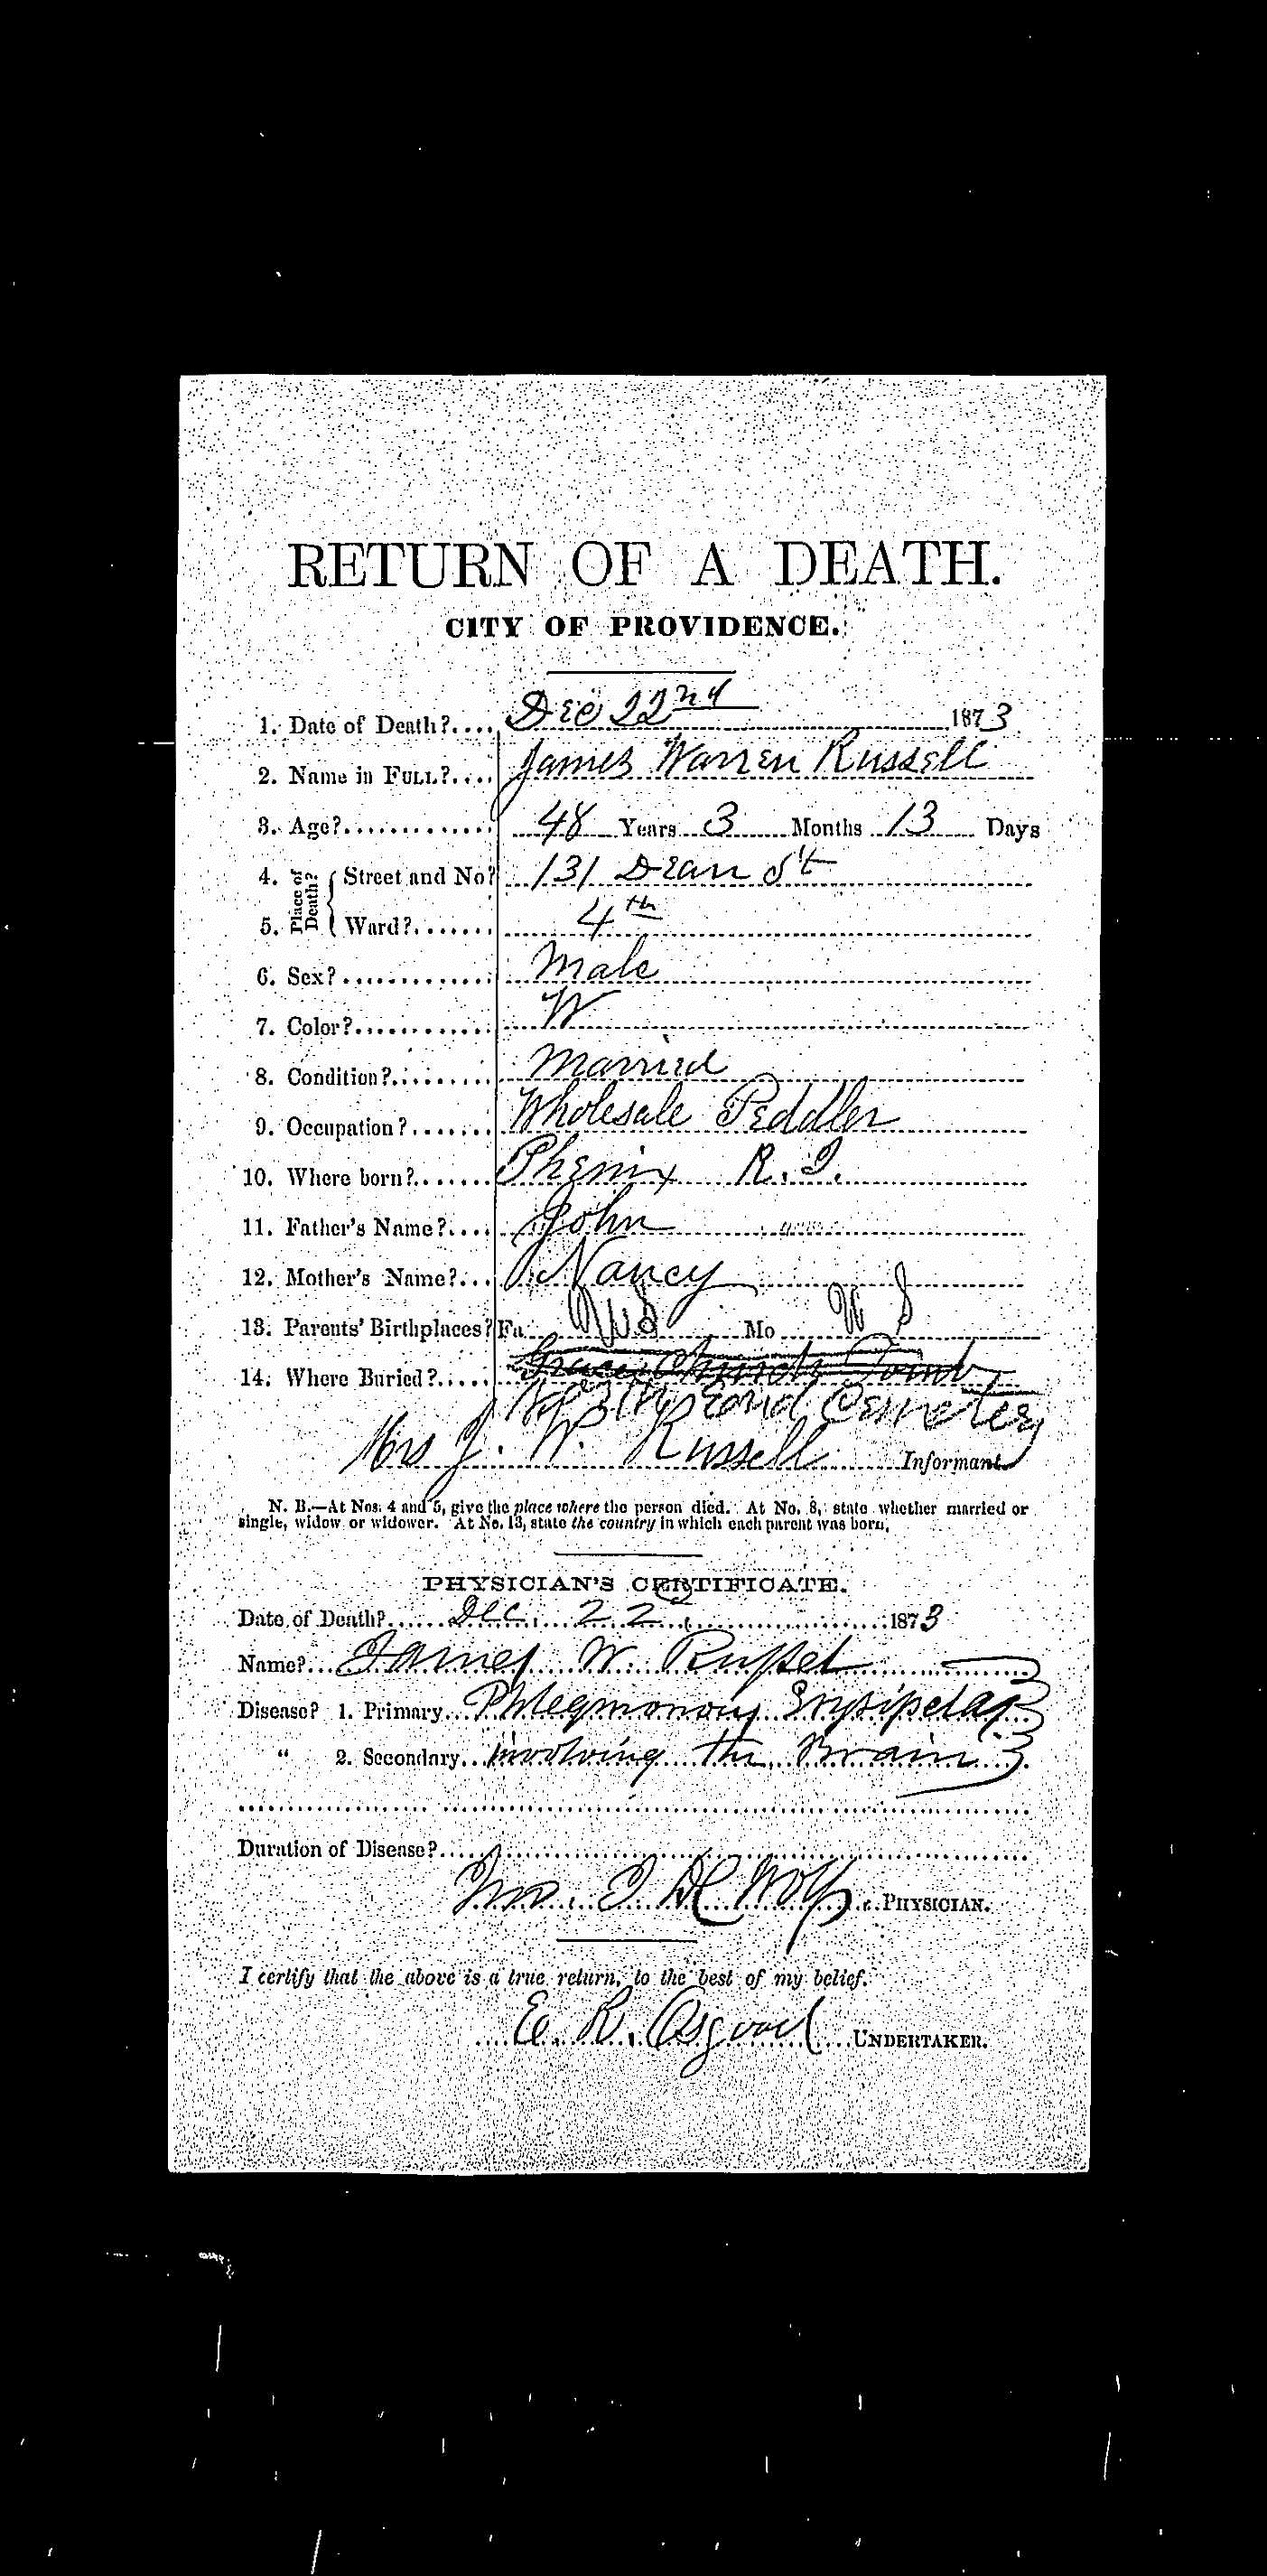 RETURN OF A DEATH.
CITY OF PROVIDENCE.
1. Date of Death?.... Dec 22nd 1873
2. Name in FULL?.... James Warren Russell
3. Age?............. 48 Years 3 Months 13 Days
4. Place of Death? Street and No? 131 Dean St
5. Ward?....... 4th
6. Sex?............. Male
7. Color?............ W
8. Condition?......... Married
9. Occupation?....... Wholesale Peddler
10. Where born?....... Phenix R.I.
11. Father's Name?.... John
12. Mother's Name?... Nancy
13. Parents' Birthplaces? Fa. U S Mo U S
14. Where Buried?..... Grace Church Tomb
Pond Cemetery
Mrs J. W. Russell Informant.
N. B.—At Nos. 4 and 5, give the place where the person died. At No. 8, state whether married or
single, widow or widower. At No. 13, state the country in which each parent was born.
PHYSICIAN'S CERTIFICATE.
Date of Death?...... Dec. 22, 1873
Name?... James W. Russel
Disease? 1. Primary... Phlegmonous Erysipelas
" 2. Secondary... involving the Brain
Duration of Disease?....
Jno. J De Wolf PHYSICIAN.
I certify that the above is a true return, to the best of my belief.
E. R. Osgood UNDERTAKER.